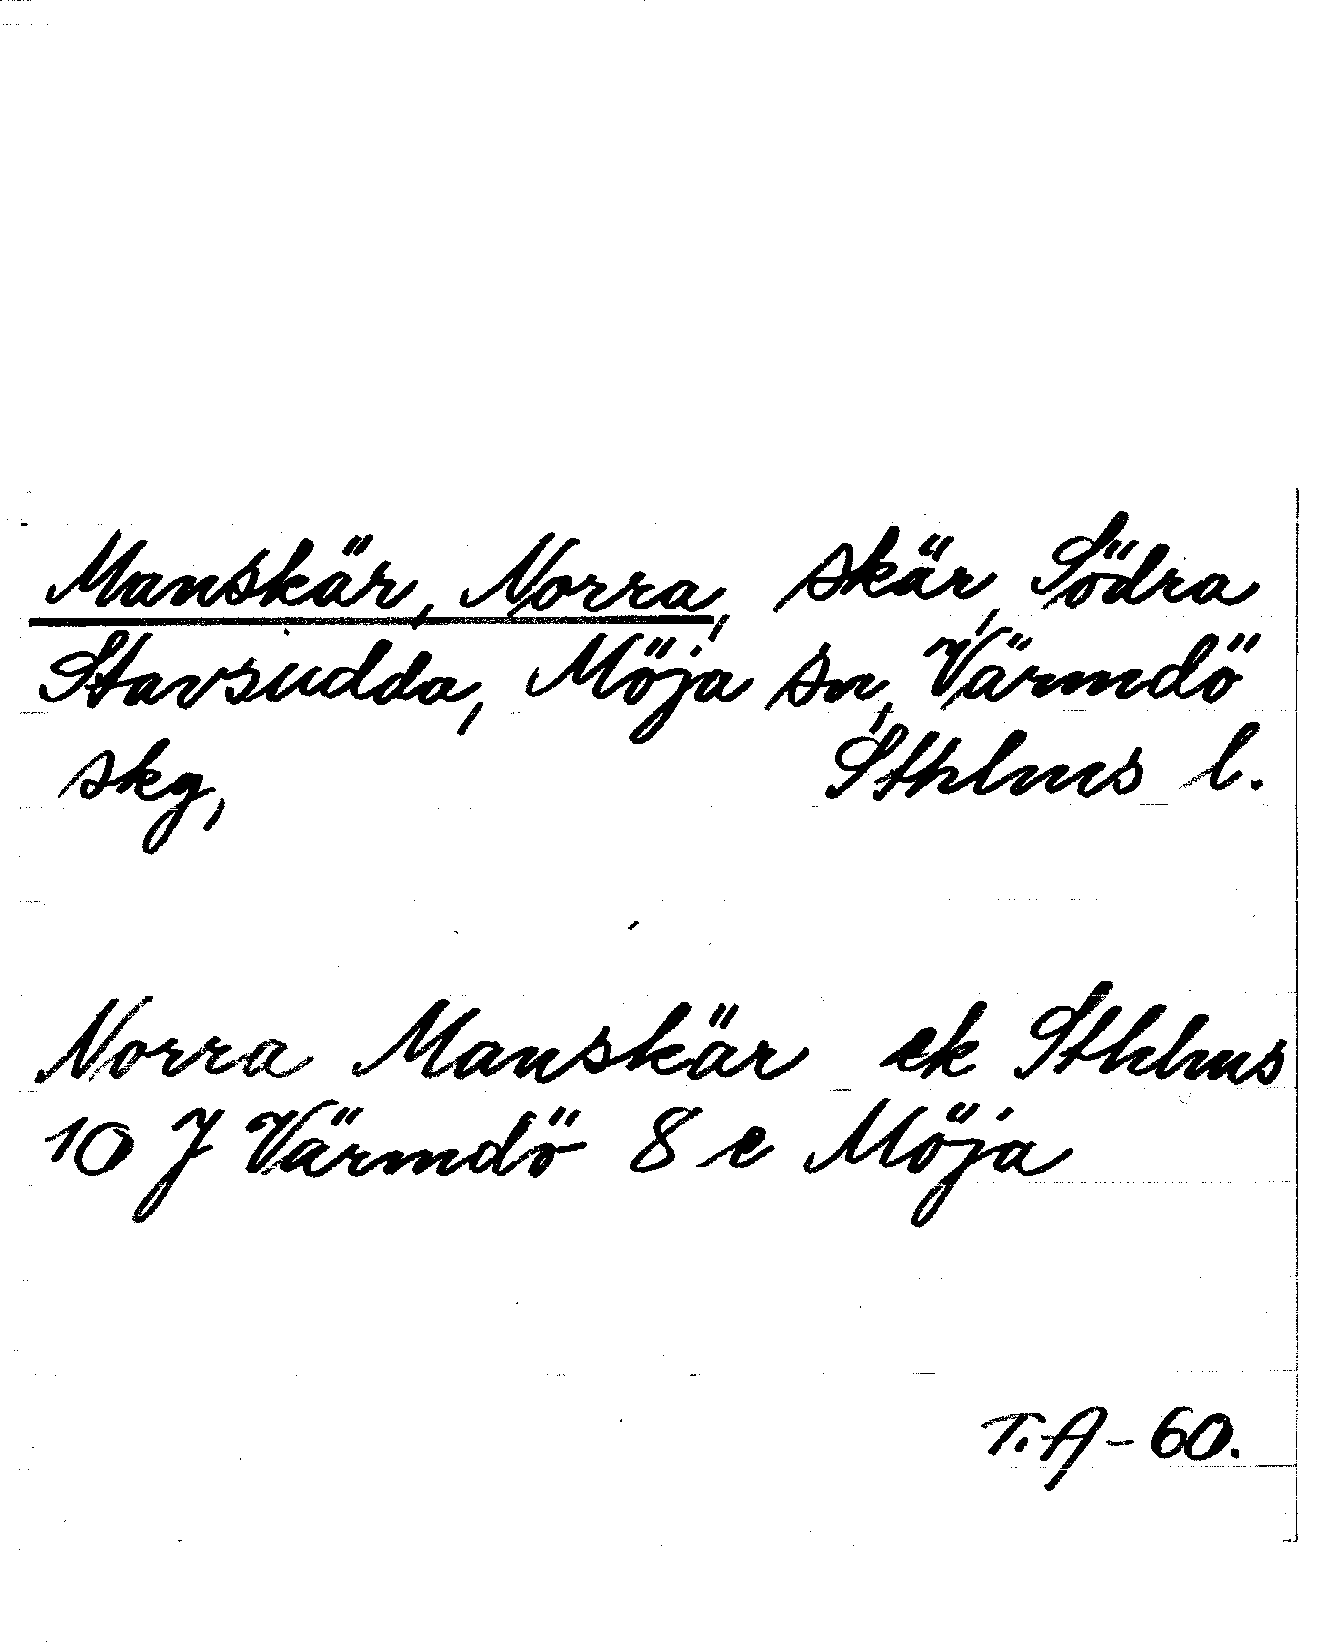 Manskär, Norra, skär, Södra
Stavsudda, Möja sn, Värmdö
skg, Sthlms l.
Norra Manskär ek Sthlms
10 J Värmdö 8 e Möja
T.A-60.